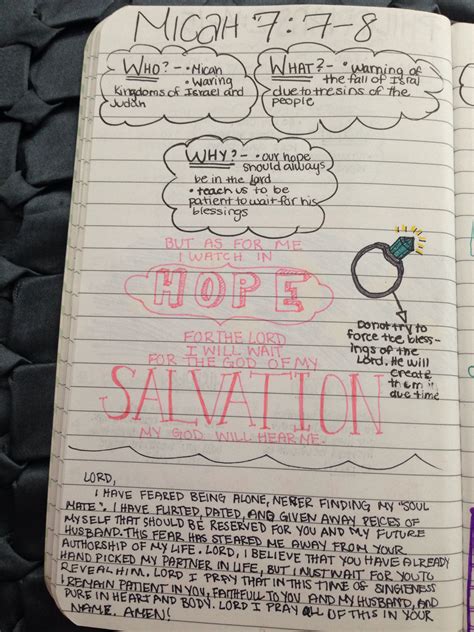 MICAH 7:7-8
WHO? - • Micah
• Waring
Kingdoms of Israel and
Judah
WHAT? - • Warning of
the fall of Isral
due to the sins of the
people
WHY? - • our hope
should always
be in the Lord
• teach us to be
patient to wait for his
blessings
BUT AS FOR ME
I WATCH IN
HOPE
FOR THE LORD
I WILL WAIT
FOR THE GOD OF MY
SALVATION
MY GOD WILL HEAR ME.
Do not try to
force the bless-
ings of the
Lord. He will
create
them in
due time
LORD,
I HAVE FEARED BEING ALONE, NEVER FINDING MY "SOUL
MATE". I HAVE FLIRTED, DATED, AND GIVEN AWAY PEICES OF
MYSELF THAT SHOULD BE RESERVED FOR YOU AND MY FUTURE
HUSBAND. THIS FEAR HAS STEARED ME AWAY FROM YOUR
AUTHORSHIP OF MY LIFE. LORD, I BELIEVE THAT YOU HAVE ALREADY
HAND PICKED MY PARTNER IN LIFE, BUT I MUST WAIT FOR YOU TO
REVEAL HIM. LORD I PRAY THAT IN THIS TIME OF SINGLENESS
I REMAIN PATIENT IN YOU, FAITHFUL TO YOU AND MY HUSBAND, AND
PURE IN HEART AND BODY. LORD I PRAY ALL OF THIS IN YOUR
NAME. AMEN!